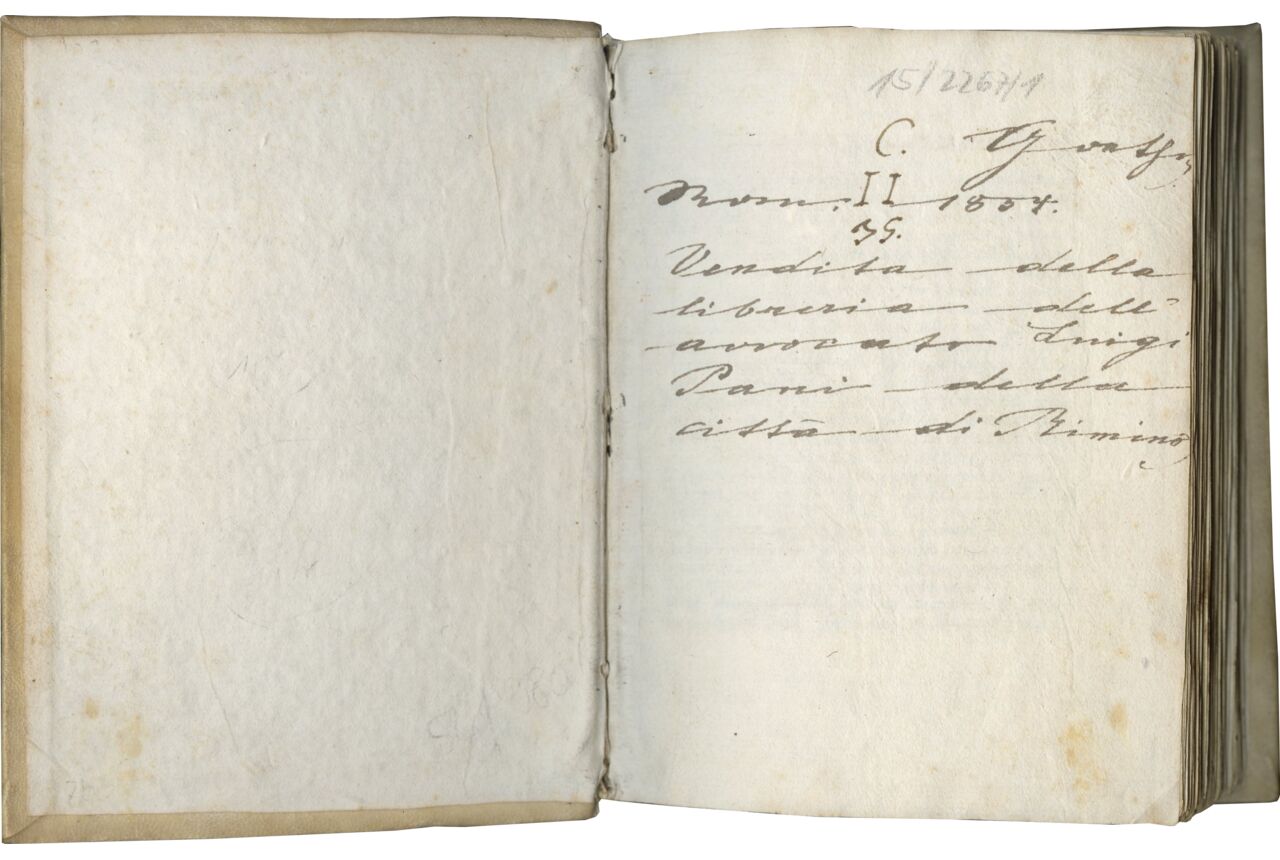 15/2267/1
C. Goethe
Rom. II 1884.
39.
Vendita della
libreria dell'
avvocato Luigi
Pani della
città di Rimino